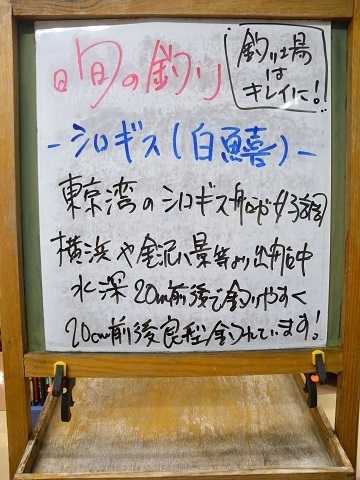 旬の釣り
釣り場
は
キレイに!
-シロギス(白鱚)-
東京湾のシロギス船が好調
横浜や金沢八景等より出船中
水深20m前後で釣りやすく
20cm前後良型釣れています!